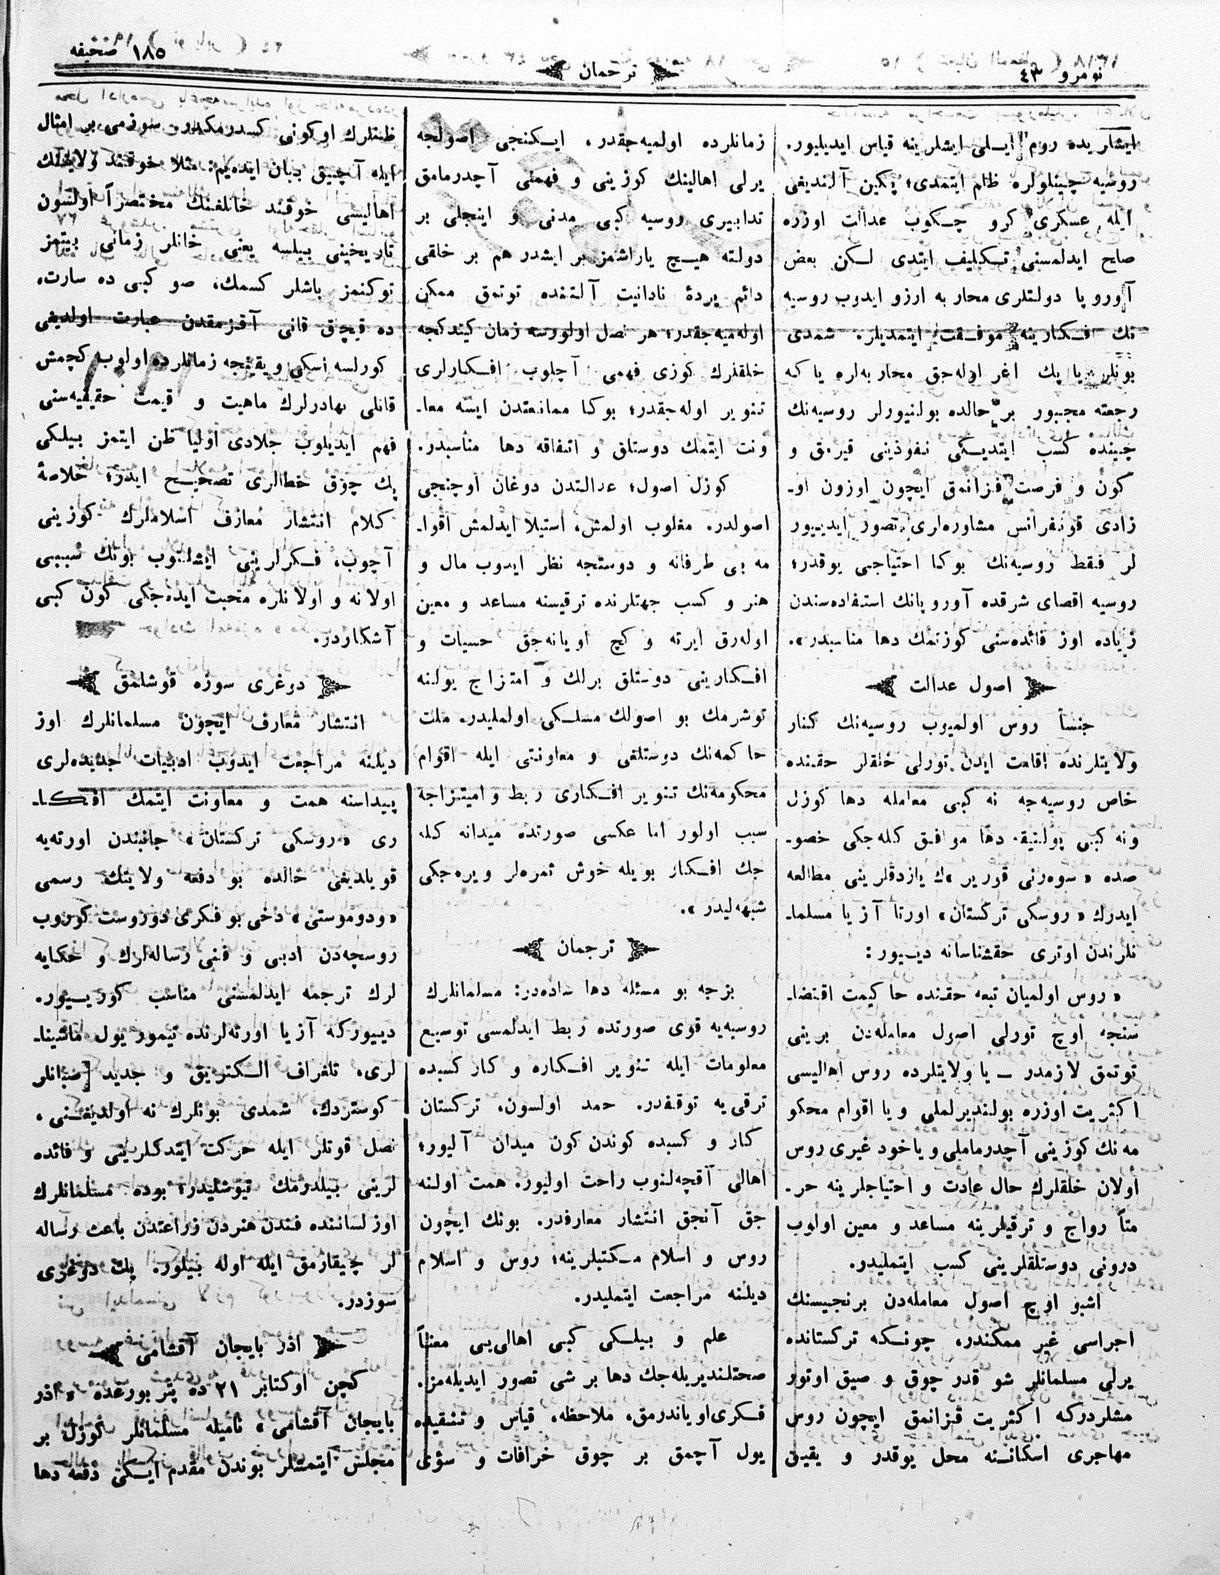 نومرو ٤٣
ترجمان
١٨٥ صحیفه
ایشلریده روم ایلی ایشلرینه قیاس ایدیلیور.
روسیه چینلولره ظلم ایتمدی؛ پكین آلندیغی
ایله عسكری كرو چكوب عدالت اوزره
صلح ایدلمسنی تكلیف ایتدی لكن بعض
آوروپا دولتلری محاربه ارزو ایدوب روسیه
نك افكارینه موفقت ایتمدیلر. شمدی
بونلر یا پك اغر اوله‌جق محاربه‌لره یا كه
رجعته مجبور بر حالده بولنیورلر روسیه‌نك
چینده كسب ایتدیكی نفوذینی قیرمق و
كون و فرصت قزانمق ایچون اوزون او-
زادی قونفرانس مشاوره‌لری تصور ایدیور
لر فقط روسیه‌نك بوكا احتیاجی یوقدر؛
روسیه اقصای شرقده آوروپانك استفاده‌سندن
زیاده اوز فائده‌سنی كوزتمك دها مناسبدر».
اصول عدالت
جنساً روس اولمیوب روسیه‌نك كنار
ولایتلرنده اقامت ایدن تورلی خلقلر حقنده
خاص روسیه‌جه نه كبی معامله دها كوزل
ونه كبی پولتیقه دها موافق كله‌جكی خصو-
صده « سوه‌رنی قوریر »ك یازدقلرینی مطالعه
ایدرك « روسكی تركستان » اورتا آزیا مسلما-
نلرندن اوتری حقشناسانه دیییور :
« روس اولمیان تبعه حقنده حاكمیت اقتضا-
سنجه اوچ تورلی اصول معامله‌دن برینی
توتمق لازمدر ــ یا ولایتلرده روس اهالیسی
اكثریت اوزره بولندیرلملی و یا اقوام محكو
مه نك كوزینی آچدرماملی و یاخود غیری روس
اولان خلقلرك حال عادت و احتیاجلرینه حر-
متاً رواج و ترقیلرینه مساعد و معین اولوب
درونی دوستلقلرینی كسب ایتملیدر.
اشبو اوچ اصول معامله‌دن برنجیسنك
اجراسی غیر ممكندر، چونكه تركستانده
یرلی مسلمانلر شو قدر چوق و صیق اوتور
مشلردركه اكثریت قزانمق ایچون روس
مهاجری اسكاننه محل یوقدر و یقین
زمانلرده اولمیه‌جقدر، ایكنجی اصولجه
یرلی اهالینك كوزینی و فهمنی آچدرمامق
تدابیری روسیه كبی مدنی و اینجلی بر
دولته هیچ یاراشمز بر ایشدر هم بر خلقی
دائم پردهٔ نادانیت آلتنده توتمق ممكن
اوله‌میه‌جقدر؛ هر نصل اولورسه زمان كیتدكجه
خلقلرك كوزی فهمی آچلوب افكارلری
تنویر اوله‌جقدر؛ بوكا ممانعتدن ایسه معا-
ونت ایتمك دوستلق و اتفاقه دها مناسبدر.
كوزل اصول؛ عدالتدن دوغان اوچنجی
اصولدر. مغلوب اولمش، استیلا ایدلمش اقوا-
مه بی طرفانه و دوستجه نظر ایدوب مال و
هنر و كسب جهتلرنده ترقیسنه مساعد و معین
اوله‌رق ایرته و كچ اویانه‌جق حسیات و
افكارینی دوستلق برلك و امتزاج یولنه
توشرمك بو اصولك مسلكی اولملیدر. ملت
حاكمه‌نك دوستلقی و معاونتی ایله اقوام
محكومه‌نك تنویر افكاری ربط و امیتزاجه
سبب اولور اما عكسی صورتده میدانه كله
جك افكار بویله خوش ثمره‌لر ویره‌جكی
شبهه‌لیدر ».
ترجمان
بزجه بو مسئله دها ساده‌در: مسلمانلرك
روسیه‌یه قوی صورتده ربط ایدلمسی توسیع
معلومات ایله تنویر افكاره و كار كسبده
ترقی‌یه توقفدر. حمد اولسون، تركستان
كار و كسبده كوندن كون میدان آلیور؛
اهالی آقچه‌لنوب راحت اولیور. همت اولنه
جق آنجق انتشار معارفدر. بونك ایچون
روس و اسلام مكتبلرینه؛ روس و اسلام
دیلنه مراجعت ایتملیدر.
علم و بیلكی كبی اهالی‌یی معناً
صحتلندیریله‌جك دها بر شی تصور ایدیله‌مز.
فكری اویاندرمق، ملاحظه، قیاس و تنقیده
یول آچمق بر چوق خرافات و سؤی
ظنلرك اوكونی كسدرمكدر. سوزمی بر امثال
ایله آچیق بیان ایده‌یم: مثلا خوقند ولایتنك
اهالیسی خوقند خانلغنك مختصراً اولسون
تاریخینی بیلسه یعنی خانلر زمانی بیتمز
توكنمز باشلر كسمك، صو كبی ده سارت،
ده قپچق قانی آقزمقدن عبارت اولدیغی
كورلسه اسكی و یقنجه زمانلرده اولوب كچمش
قانلی بهادرلرك ماهیت و قیمت حقیقیه‌سنی
فهم ایدیلوب جلادی اولیا ظن ایتمز بیلكی
پك چوق خطالری تصحیح ایدر؛ خلاصهٔ
كلام انتشار معارف اسلاملرك كوزینی
آچوب، فكرلرینی ایشلتوب بونك سببی
اولانه و اولانلره محبت ایده‌جكی كون كبی
آشكاردر.
دوغری سوزه قوشلمق
انتشار معارف ایچون مسلمانلرك اوز
دیلنه مراجعت ایدوب ادبیات جدیده‌لری
پیداسنه همت و معاونت ایتمك افكا-
ری «روسكی تركستان» جانبندن اورته‌یه
قویلدیغی حالده بو دفعه ولایتك رسمی
«ودوموستی» دخی بو فكری دوروست كوروب
روسچه‌دن ادبی و فنی رساله‌لرك و حكایه
لرك ترجمه ایدلمسنی مناسب كورییور.
دیییوركه آزیا اورته‌لرنده تیمور یول ماشینا-
لری، تلغراف الكتریق و جدید صبانلر
كوستردك، شمدی بونلرك نه اولدیغنی،
نصل قوتلر ایله حركت ایتدكلرینی و فائده
لرینی بیلدرمك تیوشلیدر؛ بوده مسلمانلرك
اوز لساننده فندن هنردن زراعتدن باعث رساله
لر چیقارمق ایله اوله بیلور. پك دوغری
سوزدر.
اذربایجان آقشامی
كچن اوكتابر ٢١ ده پتربورغده « اذر
بایجان آقشامی » نامیله مسلمانلر كوزل بر
مجلس ایتمشلر بوندن مقدم ایكی دفعه دها